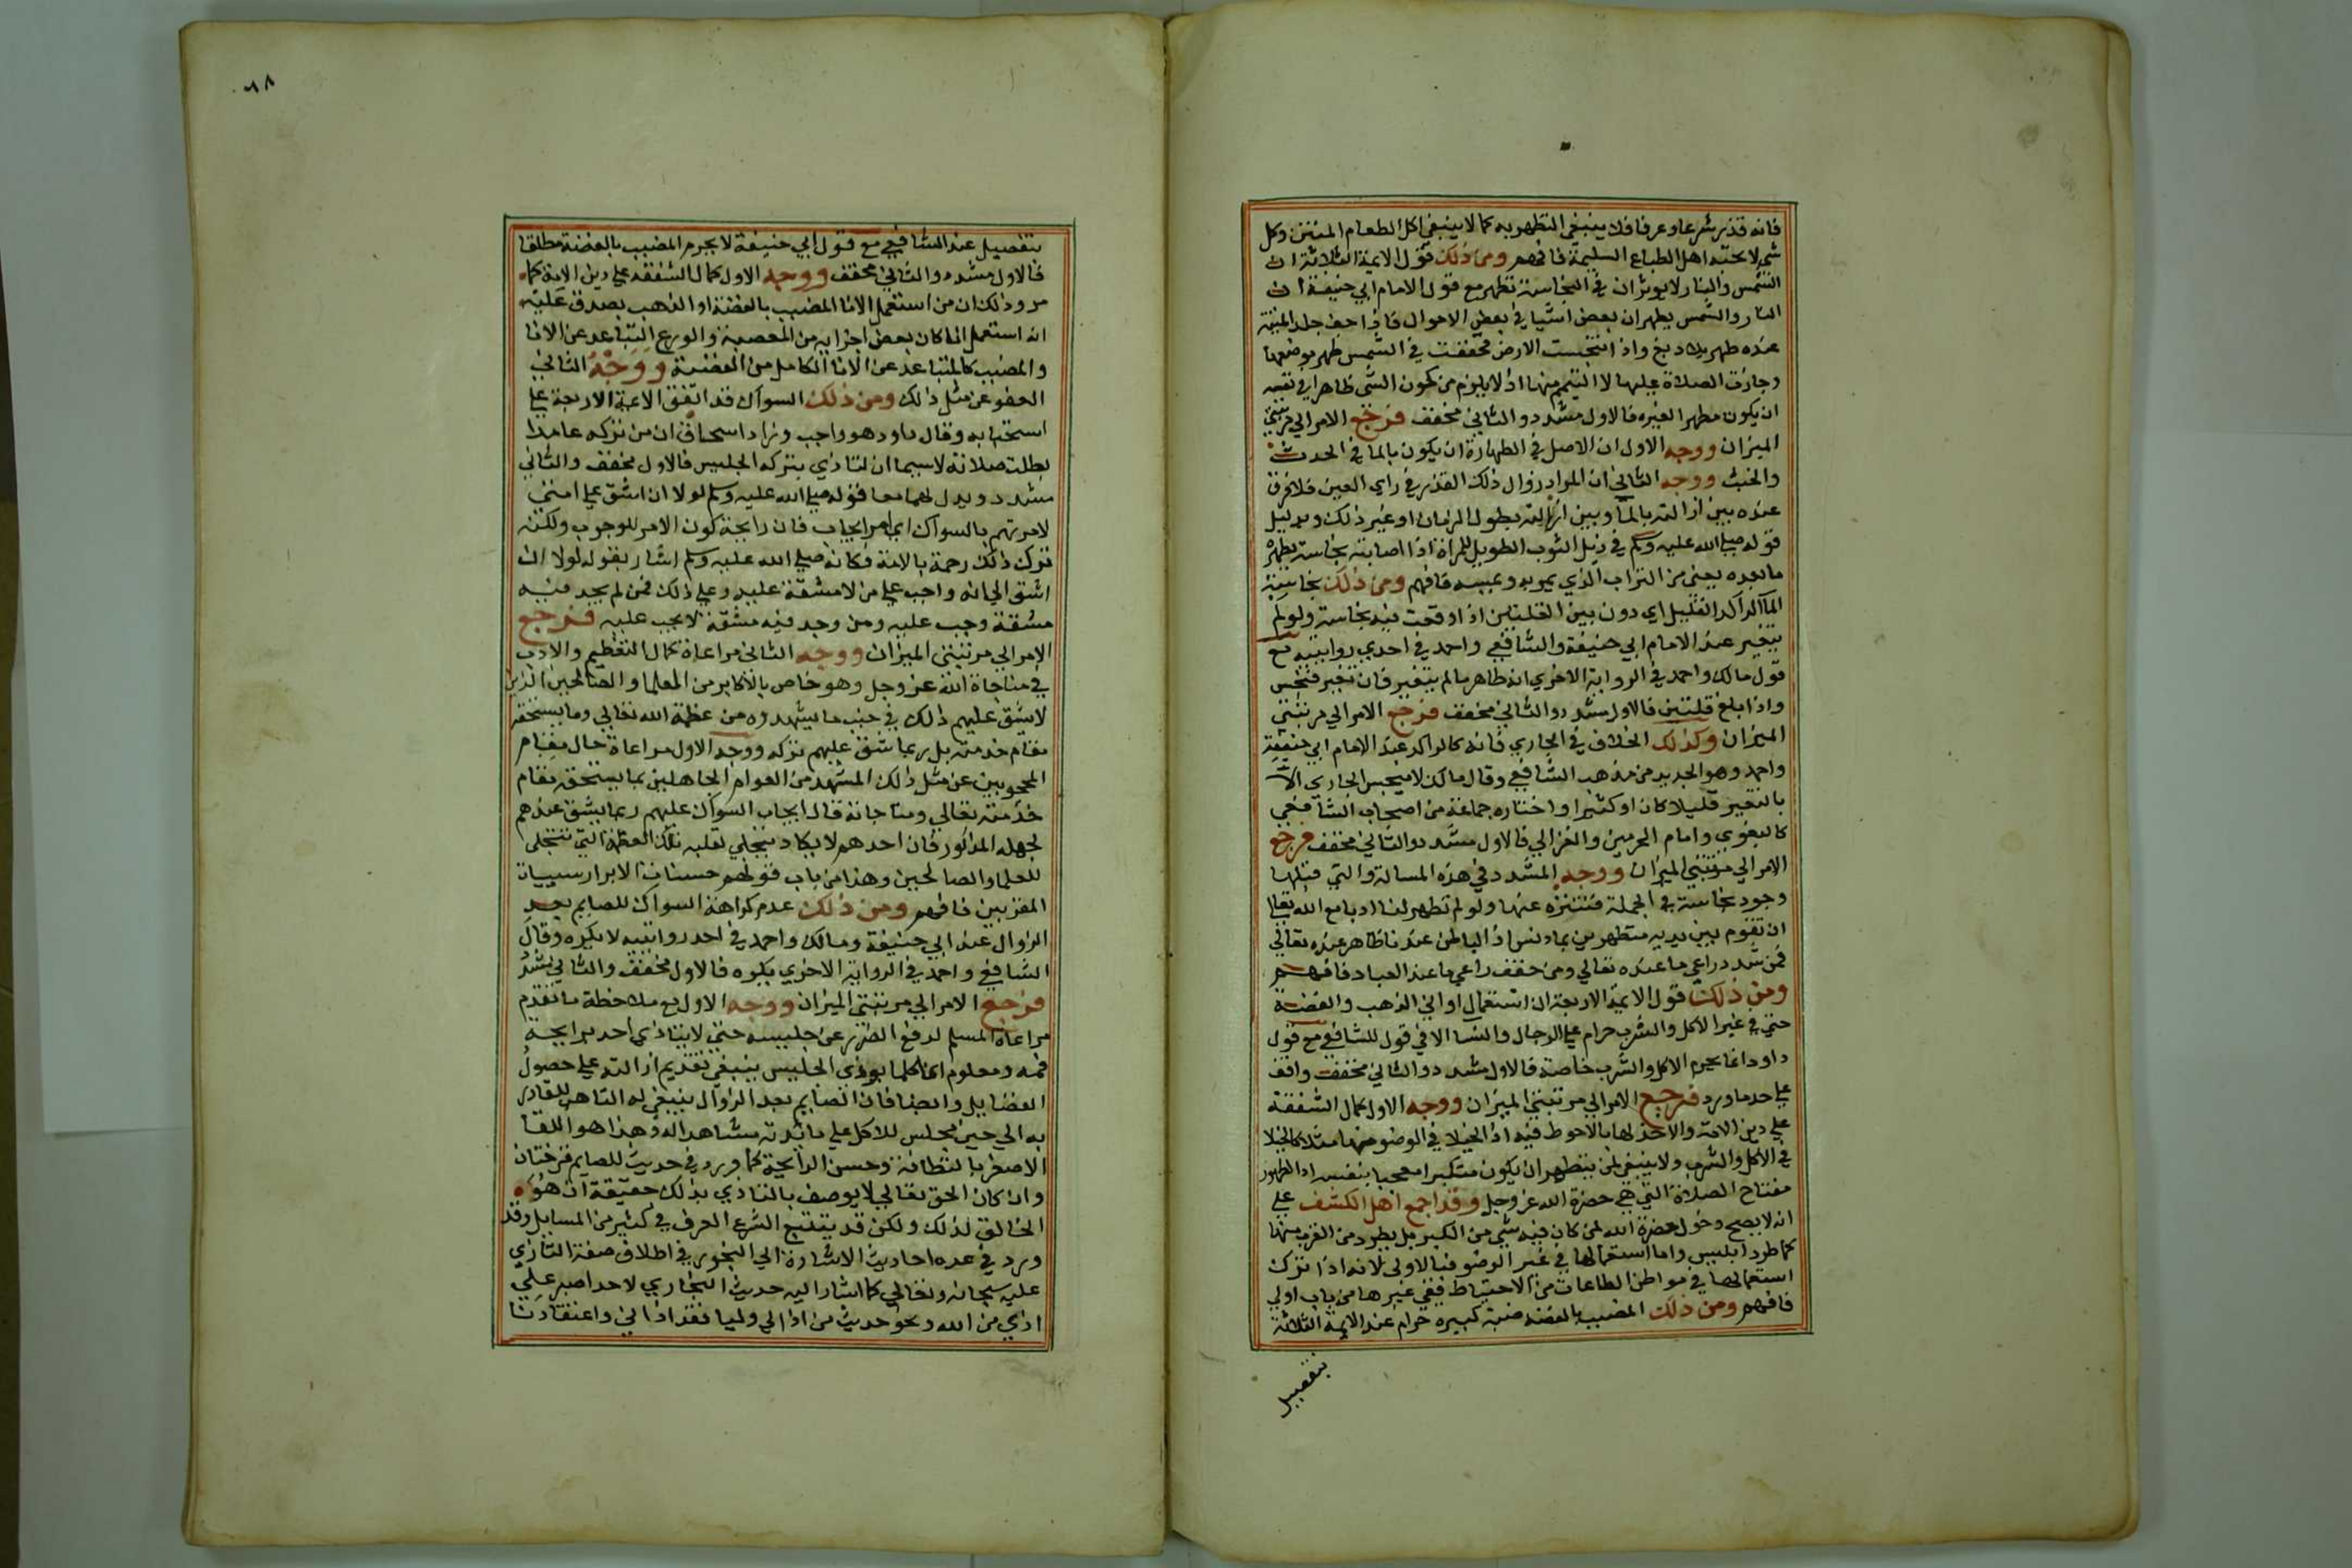 فانه قذر شرعا وعرفا فلا ينبغي التطهر به كما لا ينبغي اكل الطعام المنتن وكل
شي لا يحبه اهل الطباع السليمة فافهم ومن ذلك قول الايمة الثلاثة ان
الشمس والنار لا يوثران في النجاسة تطهر مع قول الامام ابي حنيفة ان
النار والشمس يطهران بعض اشيا في بعض الاحوال فاذا جف جلد الميتة
عنده طهر بلا دبغ واذا تنجست الارض فجففت في الشمس طهر موضعها
وجازت الصلاة عليها لا التيمم منها اذ لا يلزم من كون الشي طاهرا في نفسه
ان يكون مطهرا لغيره فالاول مشدد والثاني مخفف فرجع الامر الي مرتبتي
الميزان ووجه الاول ان الاصل في الطهارة ان يكون بالما في الحدث
والخبث ووجه الثاني ان المراد زوال ذلك القذر في راي العين فلا فرق
عنده بين ازالته بالما وبين ازالته بطول الزمان او غير ذلك وبدليل
قوله صلي الله عليه وسلم في ذيل الثوب الطويل للمراة اذا اصابته نجاسة يطهره
ما بعده يعني من التراب الذي يمر به ويمسه فافهم ومن ذلك نجاسة
الما الراكد القليل اي دون بين القلتين اذا وقعت فيه نجاسة ولو لم
يتغير عند الامام ابي حنيفة والشافعي واحمد في احدي روايتيه مع
قول مالك واحمد في الرواية الاخري انه طاهر ما لم يتغير فان تغير فنجس
واذا بلغ قلتين فالاول مشدد والثاني مخفف فرجع الامر الي مرتبتي
الميزان وكذلك الخلاف في الجاري فانه كالراكد عند الامام ابي حنيفة
واحمد وهو الجديد من مذهب الشافعي وقال مالك لا ينجس الجاري الا
بالتغير قليلا كان او كثيرا واختاره جماعة من اصحاب الشافعي
كالبغوي وامام الحرمين والغزالي فالاول مشدد والثاني مخفف فرجع
الامر الي مرتبتي الميزان ووجه المشدد في هذه المسالة والتي قبلها
وجود نجاسة في الجملة فنتنزه عنها ولو لم تظهر لنا ادبا مع الله تعالي
ان نقوم بين يديه متطهرين بما دنس اذ الباطن عندنا ظاهر عنده تعالي
فمن شدد راعي ما عنده تعالي ومن خفف راعي ما عند العباد فافهم
ومن ذلك قول الايمة الاربعة ان استعمال اواني الذهب والفضة
حتي في غير الاكل والشرب حرام علي الرجال والنسا الا في قول للشافعي مع قول
داود انما يحرم الاكل والشرب خاصة فالاول مشدد والثاني مخفف واقف
علي حد ما ورد فرجع الامر الي مرتبتي الميزان ووجه الاول كمال الشفقة
علي دين الامة والاخذ لها بالاحوط فيه اذ الخيلا في الوضو منها مثلا كالخيلا
في الاكل والشرب ولا ينبغي لمن يتطهر ان يكون متكبرا معجبا بنفسه اذ الطهور
مفتاح الصلاة التي هي حضرة الله عز وجل وقد اجمع اهل الكشف علي
انه لا يصح دخول حضرة الله لمن كان فيه شي من الكبر بل يطرد من القرب منها
كما طرد ابليس واما استعمالها في غير الوضو فبالاولي لانه اذا ترك
استعمالها في مواطن الطاعات من الاحتياط ففي غيرها من باب اولي
فافهم ومن ذلك المضبب بالفضة ضبة كبيرة حرام عند الايمة الثلاثة
بتفصيل
٨٨
بتفصيل عند الشافعي مع قول ابي حنيفة لا يحرم المضبب بالفضة مطلقا
فالاول مشدد والثاني مخفف ووجه الاول كمال الشفقة علي دين الامة كما
مر وذلك ان من استعمل الانا المضبب بالفضة او الذهب يصدق عليه
انه استعمل انا كان بعض اجزايه من المعصية والورع التباعد عن الانا
والمضبب كالتباعد عن الانا الكامل من الفضة ووجه الثاني
العفو عن مثل ذلك ومن ذلك السواك قد اتفق الايمة الاربعة علي
استحبابه وقال داود هو واجب وزاد اسحاق ان من تركه عامدا
بطلت صلاته لا سيما ان تاذي بتركه الجليس فالاول مخفف والثاني
مشدد ويدل لهما معا قوله صلي الله عليه وسلم لولا ان اشق علي امتي
لامرتهم بالسواك اي امر ايجاب فان رايحة كون الامر للوجوب ولكنه
ترك ذلك رحمة بالامة فكانه صلي الله عليه وسلم اشار بقوله لولا ان
اشق الي انه واجب علي من لا مشقة عليه وعلي ذلك فمن لم يجد فيه
مشقة وجب عليه ومن وجد فيه مشقة لا يجب عليه فرجع
الامر الي مرتبتي الميزان ووجه الثاني مراعاة كمال التعظيم والادب
في مناجاة الله عز وجل وهو خاص بالاكابر من العلما والصالحين الذين
لا يشق عليهم ذلك في جنب ما يشهدوه من عظمة الله تعالي وما يستحقه
مقام خدمته بل ربما شق عليهم تركه ووجه الاول مراعاة حال مقام
المحجوبين عن مثل ذلك المشهد من العوام الجاهلين بما يستحقه مقام
خدمته تعالي ومناجاته فان ايجاب السواك عليهم ربما يشق عندهم
لجهله المذكور فان احدهم لا يكاد يتجلي لقلبه تلك العظمة التي تتجلي
للعلما والصالحين وهذا من باب قولهم حسنات الابرار سييات
المقربين فافهم ومن ذلك عدم كراهة السواك للصايم بعد
الزوال عند ابي حنيفة ومالك واحمد في احد روايتيه لا يكره وقال
الشافعي واحمد في الرواية الاخري يكره فالاول مخفف والثاني مشدد
فرجع الامر الي مرتبتي الميزان ووجه الاول مع ملاحظة ما تقدم
مراعاة المسلم لدفع الضرر عن جليسه حتي لا يتاذي احد برايحة
فمه ومعلوم ان كلما يوذي الجليس ينبغي تقديم ازالته علي حصول
الفضايل وايضا فان الصايم بعد الزوال ينبغي له التاهب للقا ربه
به الي حين مجلس للاكل علي مائدته مشاهدا له وهذا هو اللقا
الاصغر بالنظافة وحسن الرايحة كما ورد في حديث للصايم فرحتان
وان كان الحق تعالي لا يوصف بالتاذي بذلك حقيقة اذ هو
الخالق لذلك ولكن قد يتبع الشرع العرف في كثير من المسايل وقد
ورد في عده احاديث الاشارة الي التجوز في اطلاق صفة التاذي
عليه سبحانه وتعالي كما اشار اليه حديث البخاري لا احد اصبر علي
اذي من الله ونحو حديث من اذي لي وليا فقد اذاني واعتقادنا